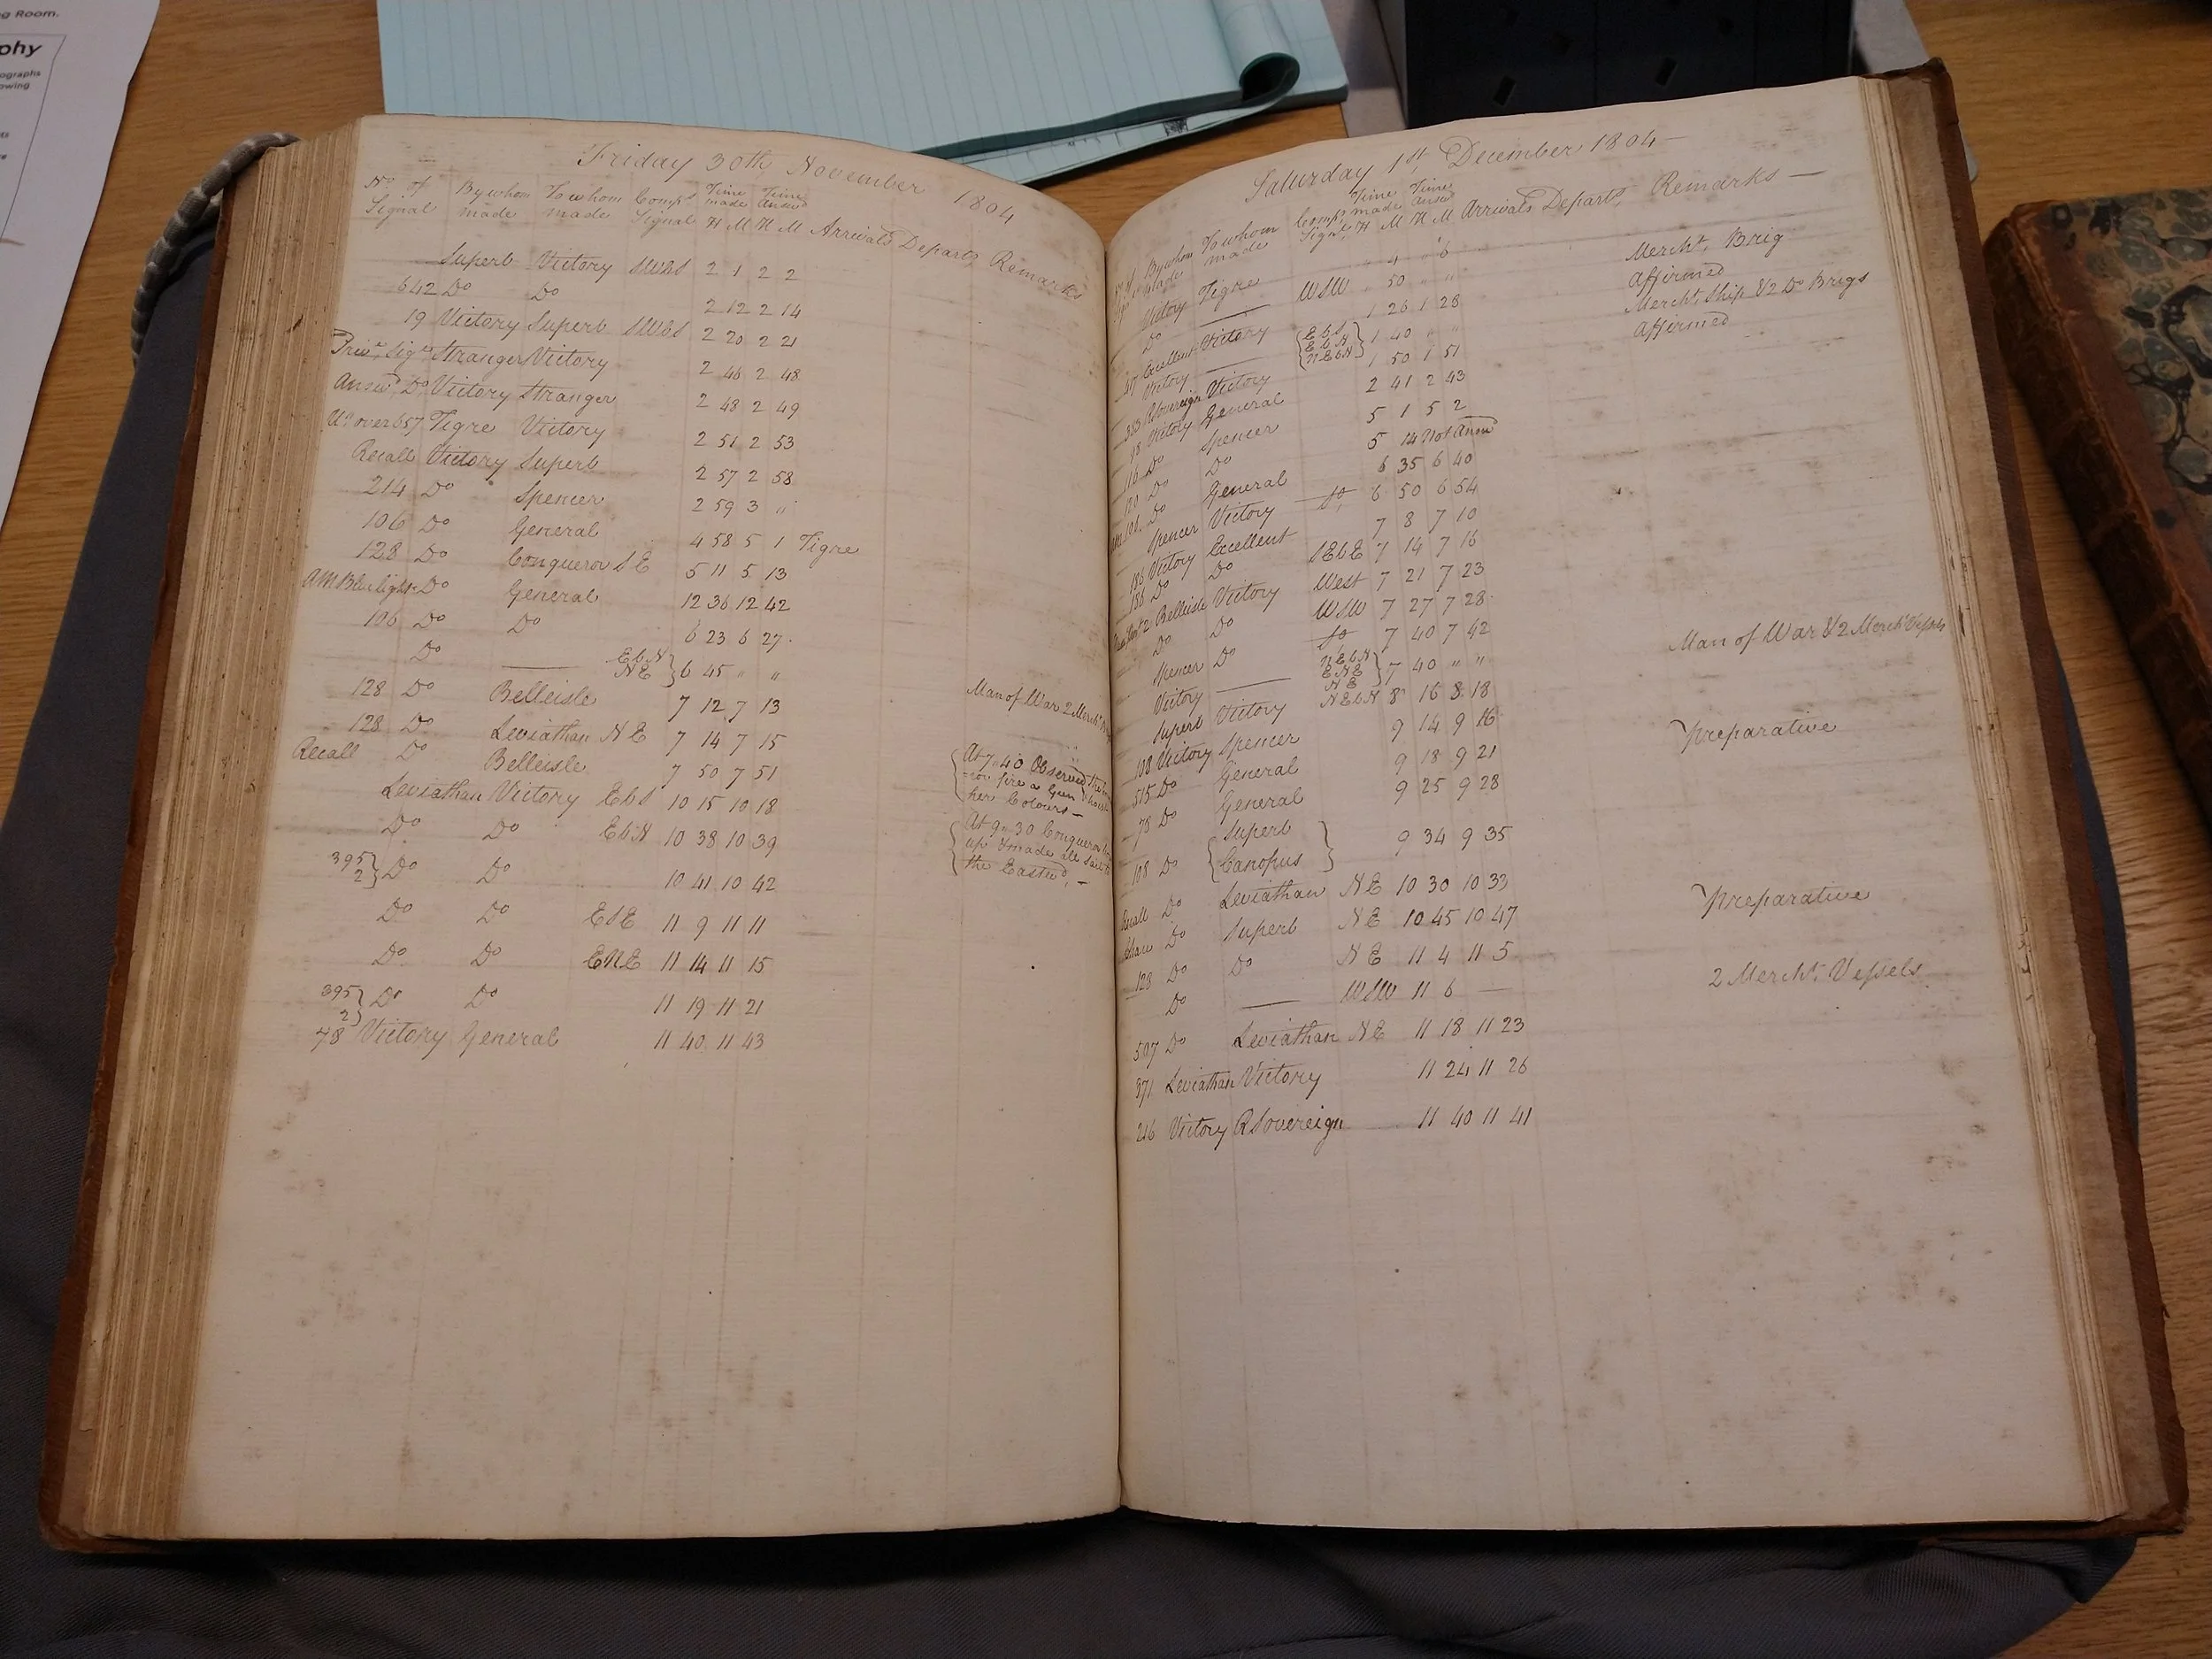 g Room.
phy
ographs
owing
Friday 30th November 1804
No of Signal By whom made To whom made Comps Signal Time made H M Time Answd H M Arrivals Departs Remarks
Superb Victory SWbS 2 1 2 2
642 Do Do 2 12 2 14
19 Victory Superb SWbS 2 20 2 21
Privt Sigl Stranger Victory 2 46 2 48
Answd Do Victory Stranger 2 48 2 49
over 657 Tigre Victory 2 51 2 53
Recall Victory Superb 2 57 2 58
214 Do Spencer 2 59 3 "
106 Do General 4 58 5 1 Tigre
128 Do Conqueror SE 5 11 5 13
AM Blue light Do General 12 36 12 42
106 Do Do 6 23 6 27
Do —— EbN NE } 6 45 " "
128 Do Belleisle 7 12 7 13 Man of War 2 Mercht
128 Do Leviathan NE 7 14 7 15
Recall Do Belleisle 7 50 7 51 At 7.40 Observed
Leviathan Victory EbS 10 15 10 18 fire a Gun her Colours —
Do Do EbN 10 38 10 39 At 9.30 Conqueror
395 2 } Do Do 10 41 10 42 up & made all sail the Eastwd, —
Do Do ESE 11 9 11 11
Do Do ENE 11 14 11 15
395 2 } Do Do 11 19 11 21
78 Victory General 11 40 11 43
Saturday 1st December 1804
By whom made To whom made Comps Signl Time made H M Time Answd H M Arrivals Departs Remarks —
Victory Tigre " 4 " 6
Do —— WSW " 50 " " Mercht Brig
Excellent Victory 1 26 1 28 Affirmed
Victory —— { EbS EbN NEbN } 1 40 " " Mercht Ship & 2 Do Brigs
383 RSovereign Victory 1 50 1 51 Affirmed
18 Victory General 2 41 2 43
116 Do Spencer 5 1 5 2
120 Do Do 5 14 Not Answd
106 Do General 6 35 6 40
Spencer Victory 6 50 6 54
186 Victory Excellent 7 8 7 10
186 Do Do SEbE 7 14 7 16
2 Belleisle Victory West 7 21 7 23
Do Do WSW 7 27 7 28
Spencer Do 7 40 7 42
Victory —— NEbN ENE NE } 7 40 " " Man of War & 2 Mercht Vessels
Superb Victory NEbN 8 16 8 18
108 Victory Spencer 9 14 9 16
515 Do General 9 18 9 21 Preparative
78 Do General 9 25 9 28
108 Do { Superb Canopus } 9 34 9 35
Recall Do Leviathan NE 10 30 10 33
Do Superb NE 10 45 10 47 Preparative
123 Do Do NE 11 4 11 5
Do —— WSW 11 6 — 2 Mercht Vessels
507 Do Leviathan NE 11 18 11 23
371 Leviathan Victory 11 24 11 26
216 Victory RSovereign 11 40 11 41